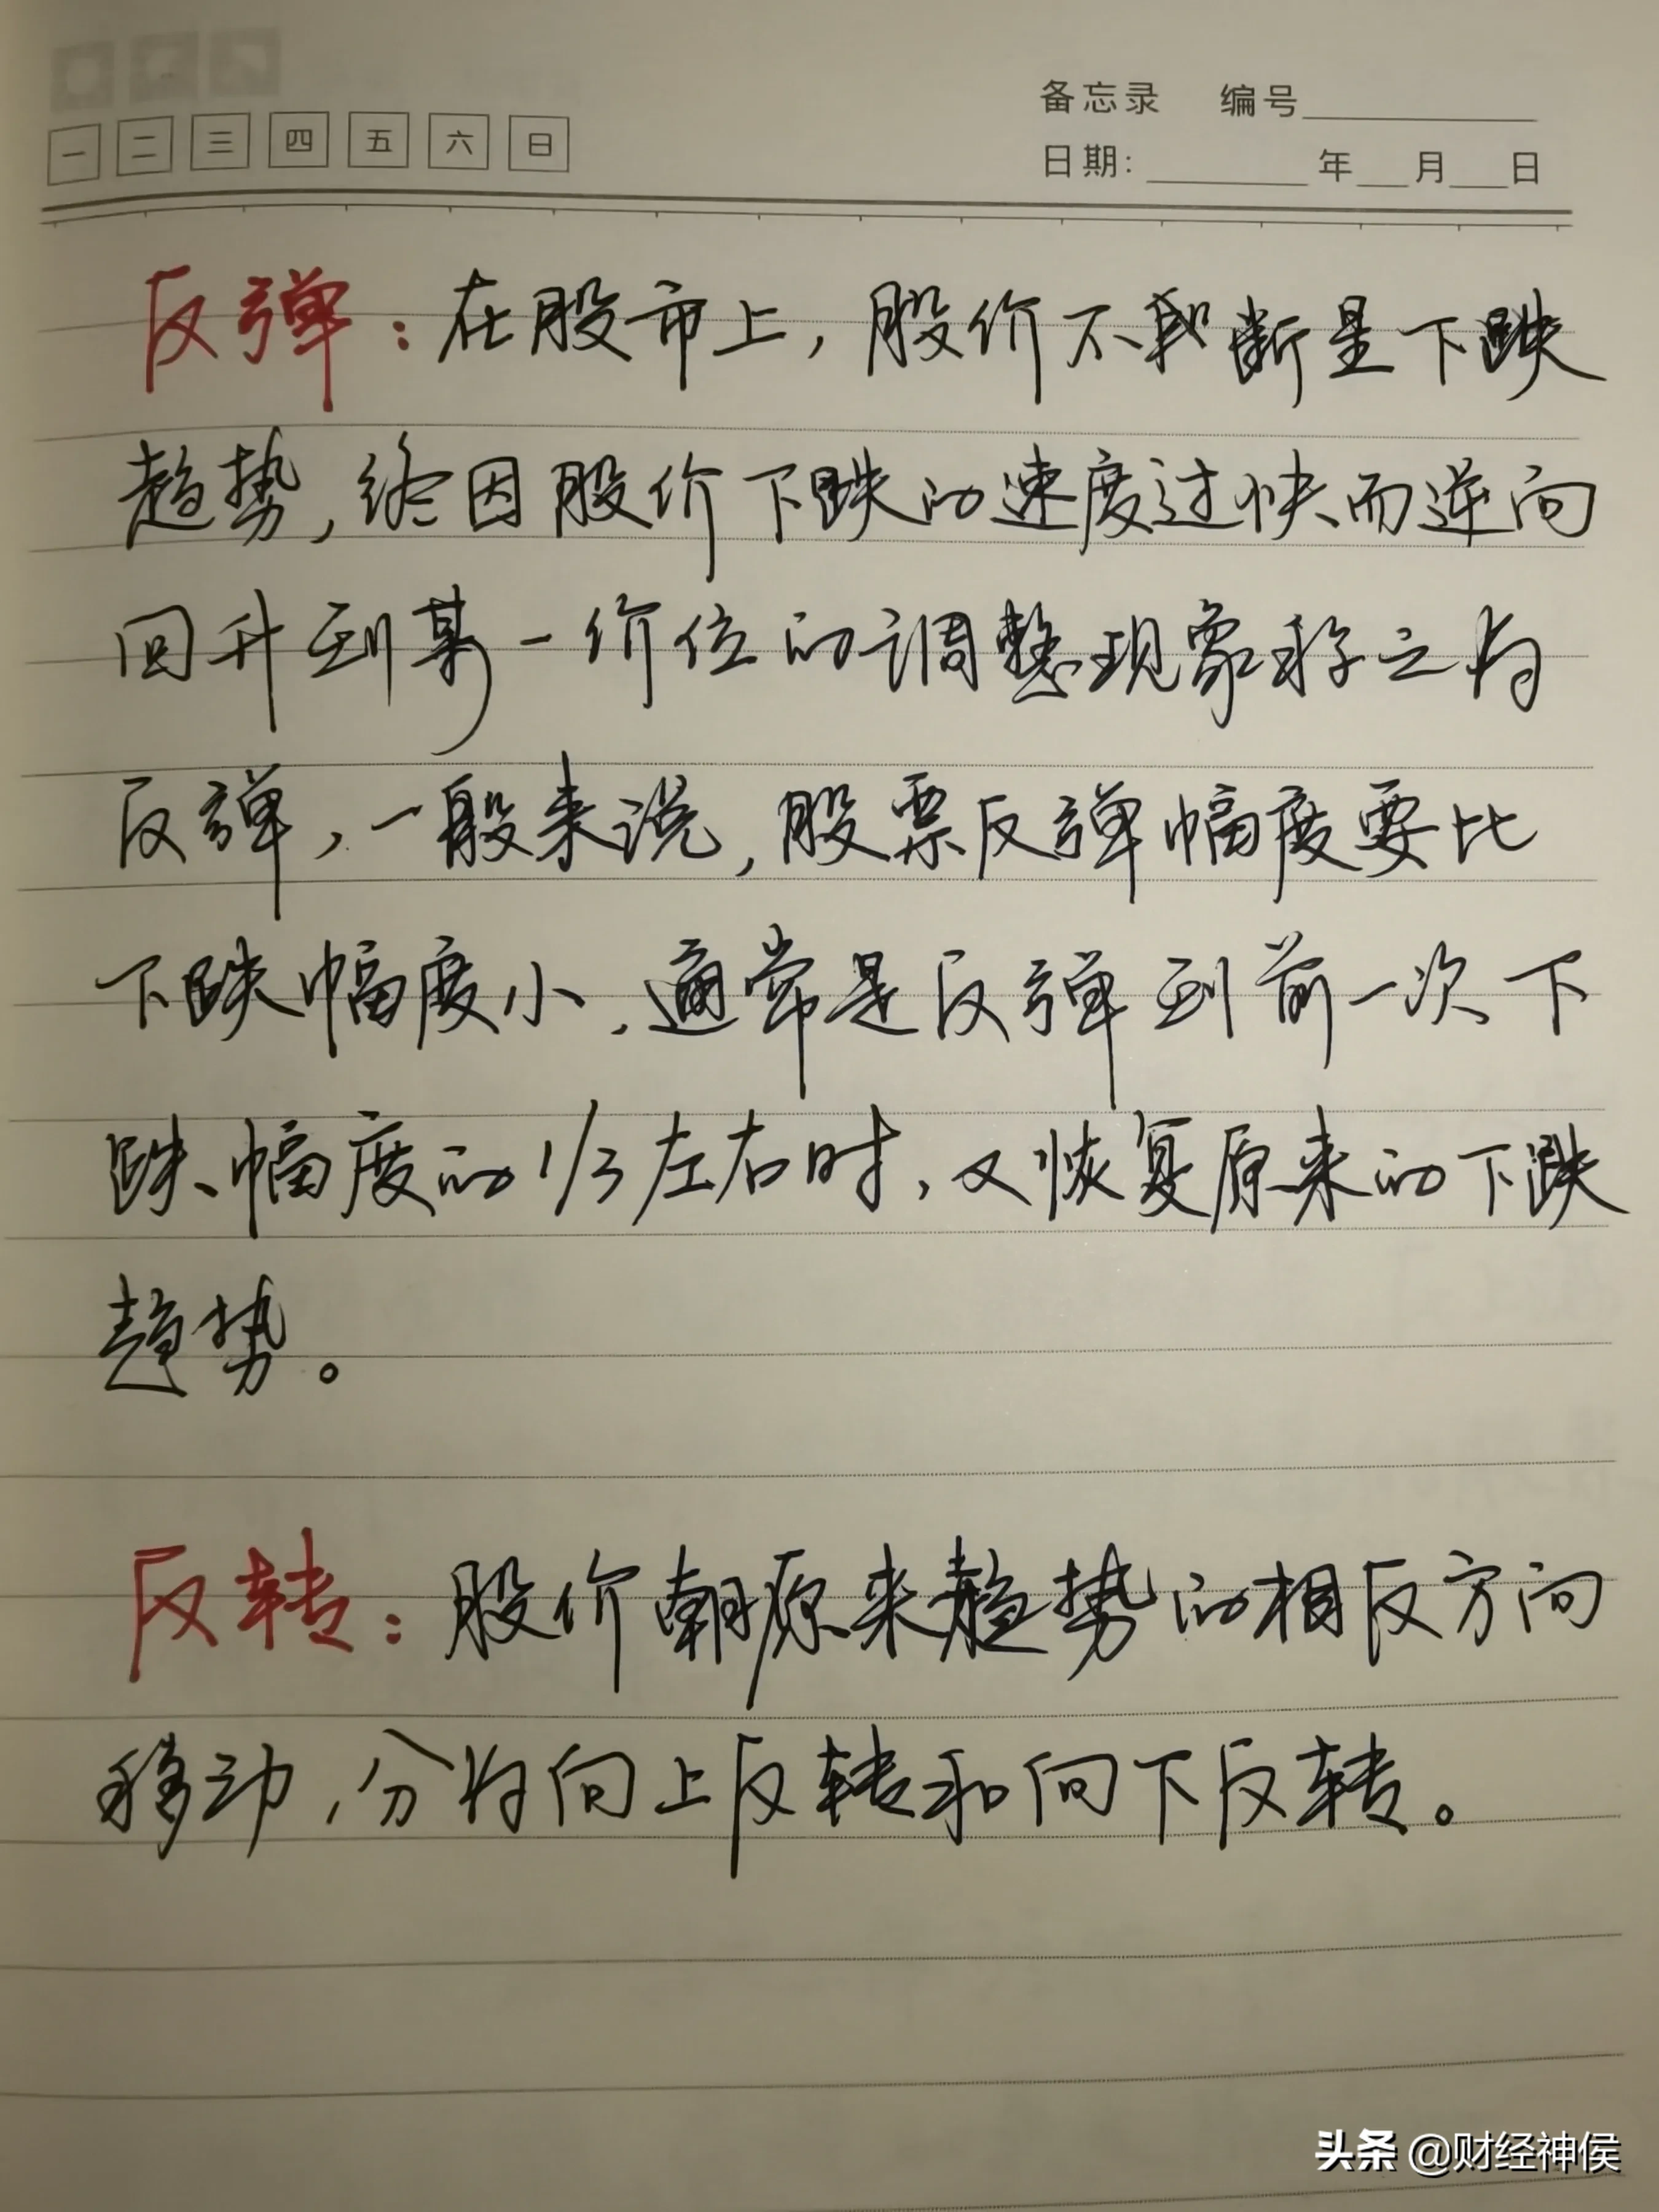 备忘录 编号
一 二 三 四 五 六 日
日期: 年 月 日
反弹：在股市上，股价不断呈下跌
趋势，终因股价下跌的速度过快而逆向
回升到某一价位的调整现象称之为
反弹，一般来说，股票反弹幅度要比
下跌幅度小，通常是反弹到前一次下
跌幅度的1/3左右时，又恢复原来的下跌
趋势。
反转：股价朝原来趋势的相反方向
移动，分为向上反转和向下反转。
头条 @财经神侯